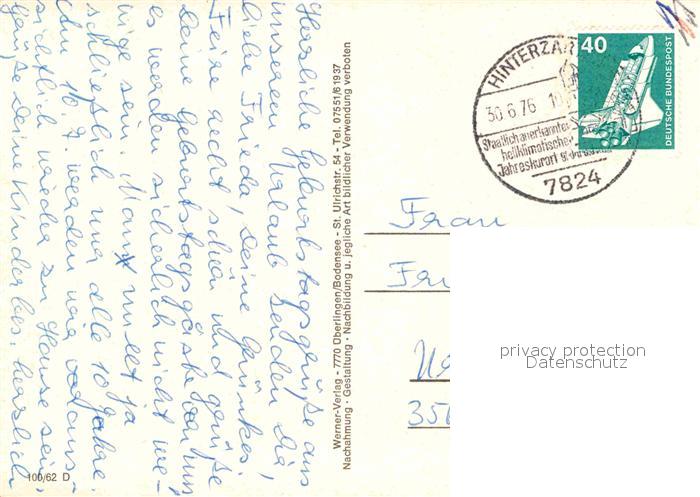 Herzliche Geburtstagsgrüße aus
unserem Urlaub senden Dir
liebe Frieda, Deine Grünkes,
Feire recht schön und grüße
Deine Geburtstagsgäste von uns
es werden sicherlich nicht we-
nige sein. Mann wird ja
schließlich nur alle 10 Jahre.
Am 10.7. werden wir voraus-
sichtlich wieder zu Hause sein,
grüße Deine Kinder bes. herzlich
100/62 D
Werner-Verlag - 7770 Überlingen/Bodensee - St. Ulrichstr. 54 - Tel. 07551/61937
Nachahmung - Gestaltung - Nachbildung u. jegliche Art bildlicher Verwendung verboten
HINTERZAR
30.6.76
Staatlich anerkannter
heilklimatischer
Jahreskurort
7824
40
DEUTSCHE BUNDESPOST
Frau
privacy protection
Datenschutz